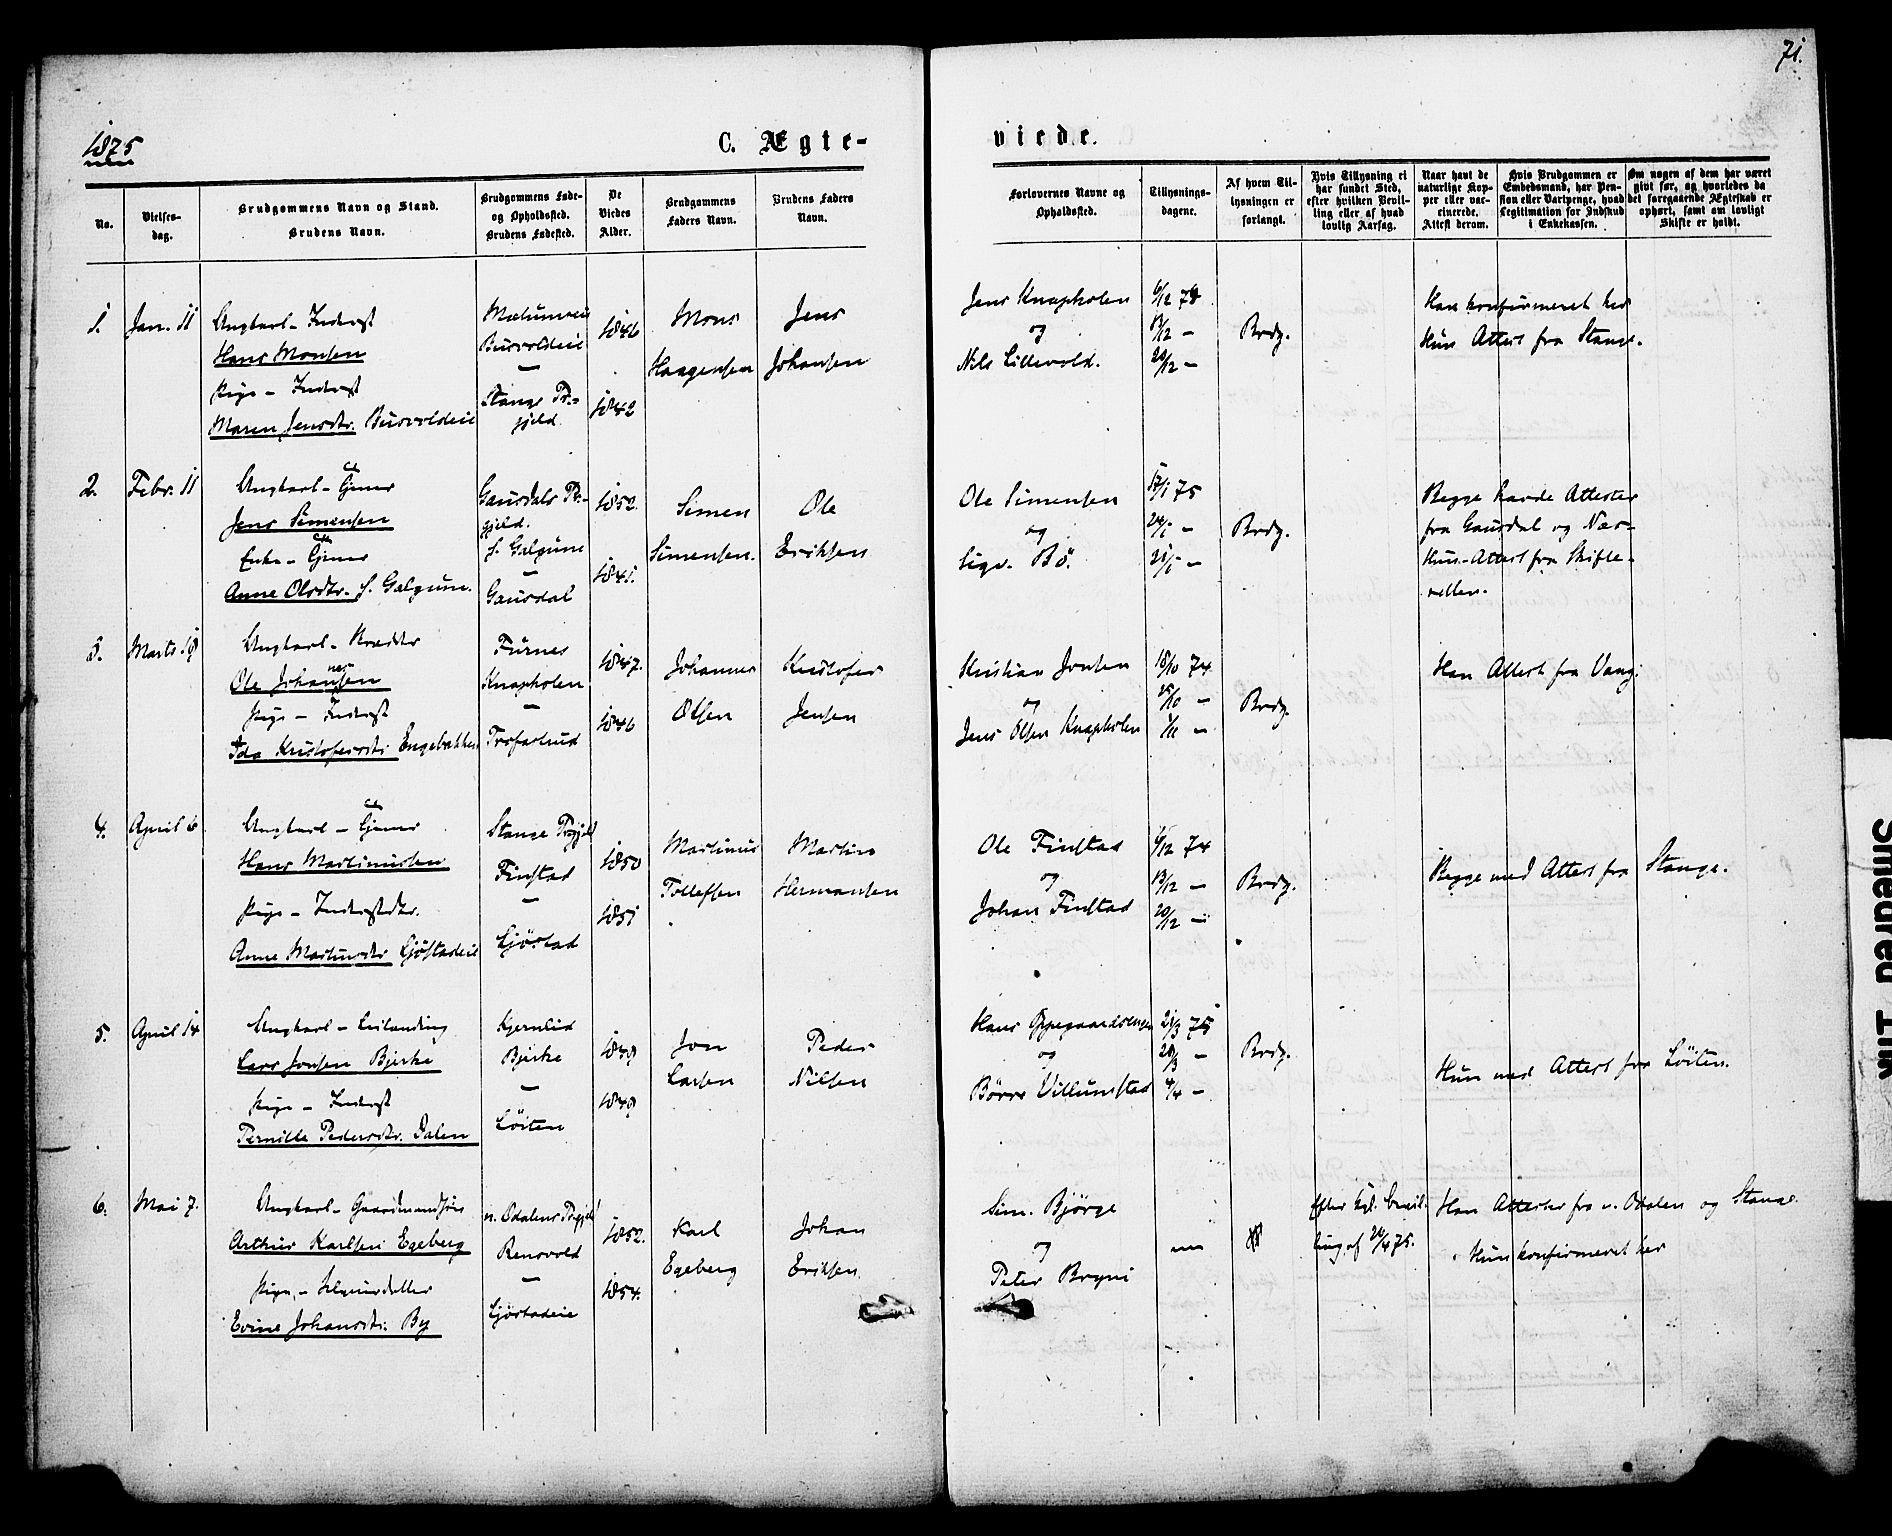 71.
1875
C. Ægte-
viede.
No.
Vielses-
dag.
Brudgommens Navn og Stand.
Brudens Navn.
Brudgommens Føde-
og Opholdssted.
Brudens Fødested.
De
Viedes
Alder.
Brudgommens
Faders Navn.
Brudens Faders
Navn.
Forlovernes Navne og
Opholdssted.
Tillysnings-
dagene.
Af hvem Til-
lysningen er
forlangt.
Hvis Tillysning ei
har fundet Sted,
efter hvilken Bevil-
ling eller af hvad
lovlig Aarsag.
Naar havt de
naturlige Kop-
per eller vac-
cinerede.
Attest derom.
Hvis Brudgommen er
Embedsmand, har Pen-
sion eller Vartpenge, hvad
Legitimation for Indskud
i Enkekassen.
Om nogen af dem har været
gift før, og hvorledes da
det foregaaende Ægteskab er
ophørt, samt om lovligt
Skifte er holdt.
1. Jan. 11
Ungkarl - Inderst
Hans Monsen
Pige - Inderst
Maren Jensdtr. Busvoldeie
Busvoldeie
Stange Pr-
gjeld.
1846
1842
Mons
Haagensen
Jens
Johansen
Jens Knapholen
og
Nils Lillevold.
6/12 74
13/12 -
20/12 -
Brdg.
Han konfirmeret her
Hun Attest fra Stange.
2. Febr. 11
Ungkarl - Gjener
Jens Simensen
Enke - Gjener
Anne Olsdtr. S. Galgum.
Gausdals Pr-
gjeld.
S. Galgum
Gausdal
1852.
1841.
Simen
Simensen.
Ole
Eriksen
Ole Simensen
og
Sigv. Bö.
17/1 75
24/1 -
Brdg.
Begge havde Attester
fra Gausdal og Næs-
Hun-Attest fra Skifte-
retten.
3. Marts 19
Ungkarl - Skrædder
Ole Johannesen
Pige - Inderst
Ida Kristofersdtr. Engebakken
Furnes
Knapholen
1847.
1846
Johannes
Olsen
Kristofer
Jensen
Kristian Jonsen
og
Jens Olsen Knapholen
18/10 74
25/10 -
1/11 -
Brdg.
Han Attest fra Vang.
4. April 6
Ungkarl - Gjener
Hans Martinusen
Pige - Inderstdtr.
Anne Martinsdtr. Ljöstadeie
Stange Prgjeld
Finstad
Ljöstad
1850
1851
Martinus
Tollefsen
Martin
Hermansen
Ole Finstad
og
Johan Finstad
6/12 74
13/12 -
20/12 -
Brdg.
Begge med Attest fra Stange.
5. April 14
Ungkarl - Leilending
Lars Jonsen Bjerke
Pige - Inderst
Pernille Pedersdtr. Dalen
Kjernlid
Bjerke
Löiten
1849
1849
Jon
Larsen
Peder
Nilsen
Hans Oppegaardsengen
og
Börre Villumstad
21/3 75
28/3 -
4/4 -
Brdg.
Hun med Attest fra Löiten.
6. Mai 7.
Ungkarl - Gaardmandssön
Arthur Karlsen Egeberg
Pige -
Evine Johansdtr. By
n. Odalens Prgjeld
Renovold
Ljöstadeie
1852.
1854.
Karl
Egeberg
Johan
Eriksen
Sim. Björge
og
Peter Bryni
Efter kgl. Bevil-
ling af 26/4 75.
Han Attester fra n. Odalen og Stange
Hun konfirmeret her
Smedred Trik